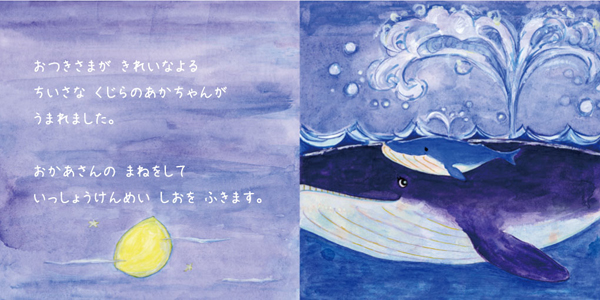 おつきさまが きれいなよる
ちいさな くじらのあかちゃんが
うまれました。
おかあさんの まねをして
いっしょうけんめい しおを ふきます。